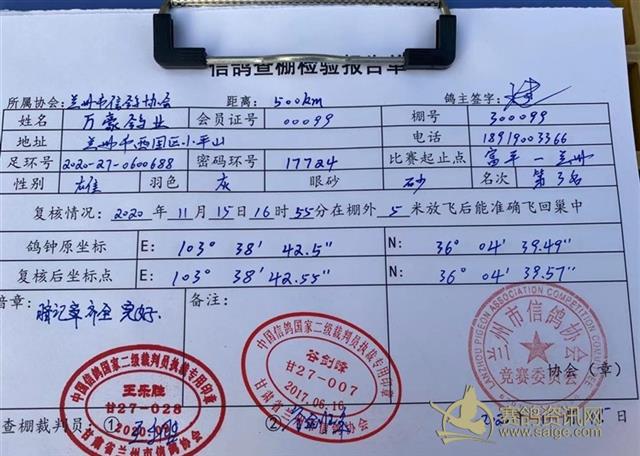 信鸽查棚检验报告单
所属协会：兰州市信鸽协会 距离：500km 鸽主签字：
姓名 万豪鸽业 会员证号 00099 棚号 300099
地址 兰州市西固区小平山 电话 18919003366
足环号 2020-27-0600688 密码环号 17724 比赛起止点 富平—兰州
性别 雄 羽色 灰 眼砂 砂 名次 第3名
复核情况：2020年11月15日16时55分在棚外5米放飞后能准确飞回巢中
鸽钟原坐标 E：103° 38′ 42.5″ N：36° 04′ 39.49″
复核后坐标点 E：103° 38′ 42.55″ N：36° 04′ 39.57″
暗章：暗记章齐全完好. 备注：
LANZHOU PIGEON ASSOCIATION COMPETITION COMMITTEE
兰州市信鸽协会
竞赛委员会
协会（章）
中国信鸽国家二级裁判员执裁专用印章
王乐胜
甘27-028
甘肃省兰州市信鸽协会
中国信鸽国家二级裁判员执裁专用印章
谷剑锋
甘27-007
2017.06.16
查棚裁判员：① ②
赛鸽资讯网
www.saige.com